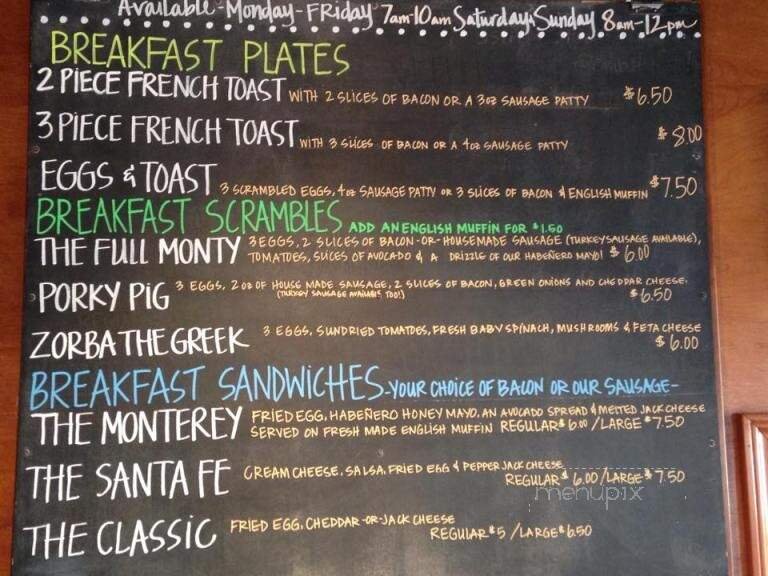 Available-Monday-Friday 7am-10am Saturday & Sunday 8am-12pm
BREAKFAST PLATES
2 PIECE FRENCH TOAST WITH 2 SLICES OF BACON OR A 3oz SAUSAGE PATTY $6.50
3 PIECE FRENCH TOAST WITH 3 SLICES OF BACON OR A 4oz SAUSAGE PATTY $8.00
EGGS & TOAST 3 SCRAMBLED EGGS, 4oz SAUSAGE PATTY OR 3 SLICES OF BACON & ENGLISH MUFFIN $7.50
BREAKFAST SCRAMBLES ADD AN ENGLISH MUFFIN FOR $1.50
THE FULL MONTY 3 EGGS, 2 SLICES OF BACON -OR- HOUSEMADE SAUSAGE (TURKEY SAUSAGE AVAILABLE),
TOMATOES, SLICES OF AVOCADO & A DRIZZLE OF OUR HABEÑERO MAYO! $6.00
PORKY PIG 3 EGGS, 2oz OF HOUSE MADE SAUSAGE, 2 SLICES OF BACON, GREEN ONIONS AND CHEDDAR CHEESE.
(TURKEY SAUSAGE AVAILABLE TOO!) $6.50
ZORBA THE GREEK 3 EGGS, SUNDRIED TOMATOES, FRESH BABY SPINACH, MUSHROOMS & FETA CHEESE
$6.00
BREAKFAST SANDWICHES -YOUR CHOICE OF BACON OR OUR SAUSAGE-
THE MONTEREY FRIED EGG, HABEÑERO HONEY MAYO, AN AVOCADO SPREAD & MELTED JACK CHEESE
SERVED ON FRESH MADE ENGLISH MUFFIN REGULAR $6.00 / LARGE $7.50
THE SANTA FE CREAM CHEESE, SALSA, FRIED EGG & PEPPER JACK CHEESE
REGULAR $6.00 / LARGE $7.50
menupix
THE CLASSIC FRIED EGG, CHEDDAR -OR- JACK CHEESE
REGULAR $5 / LARGE $6.50